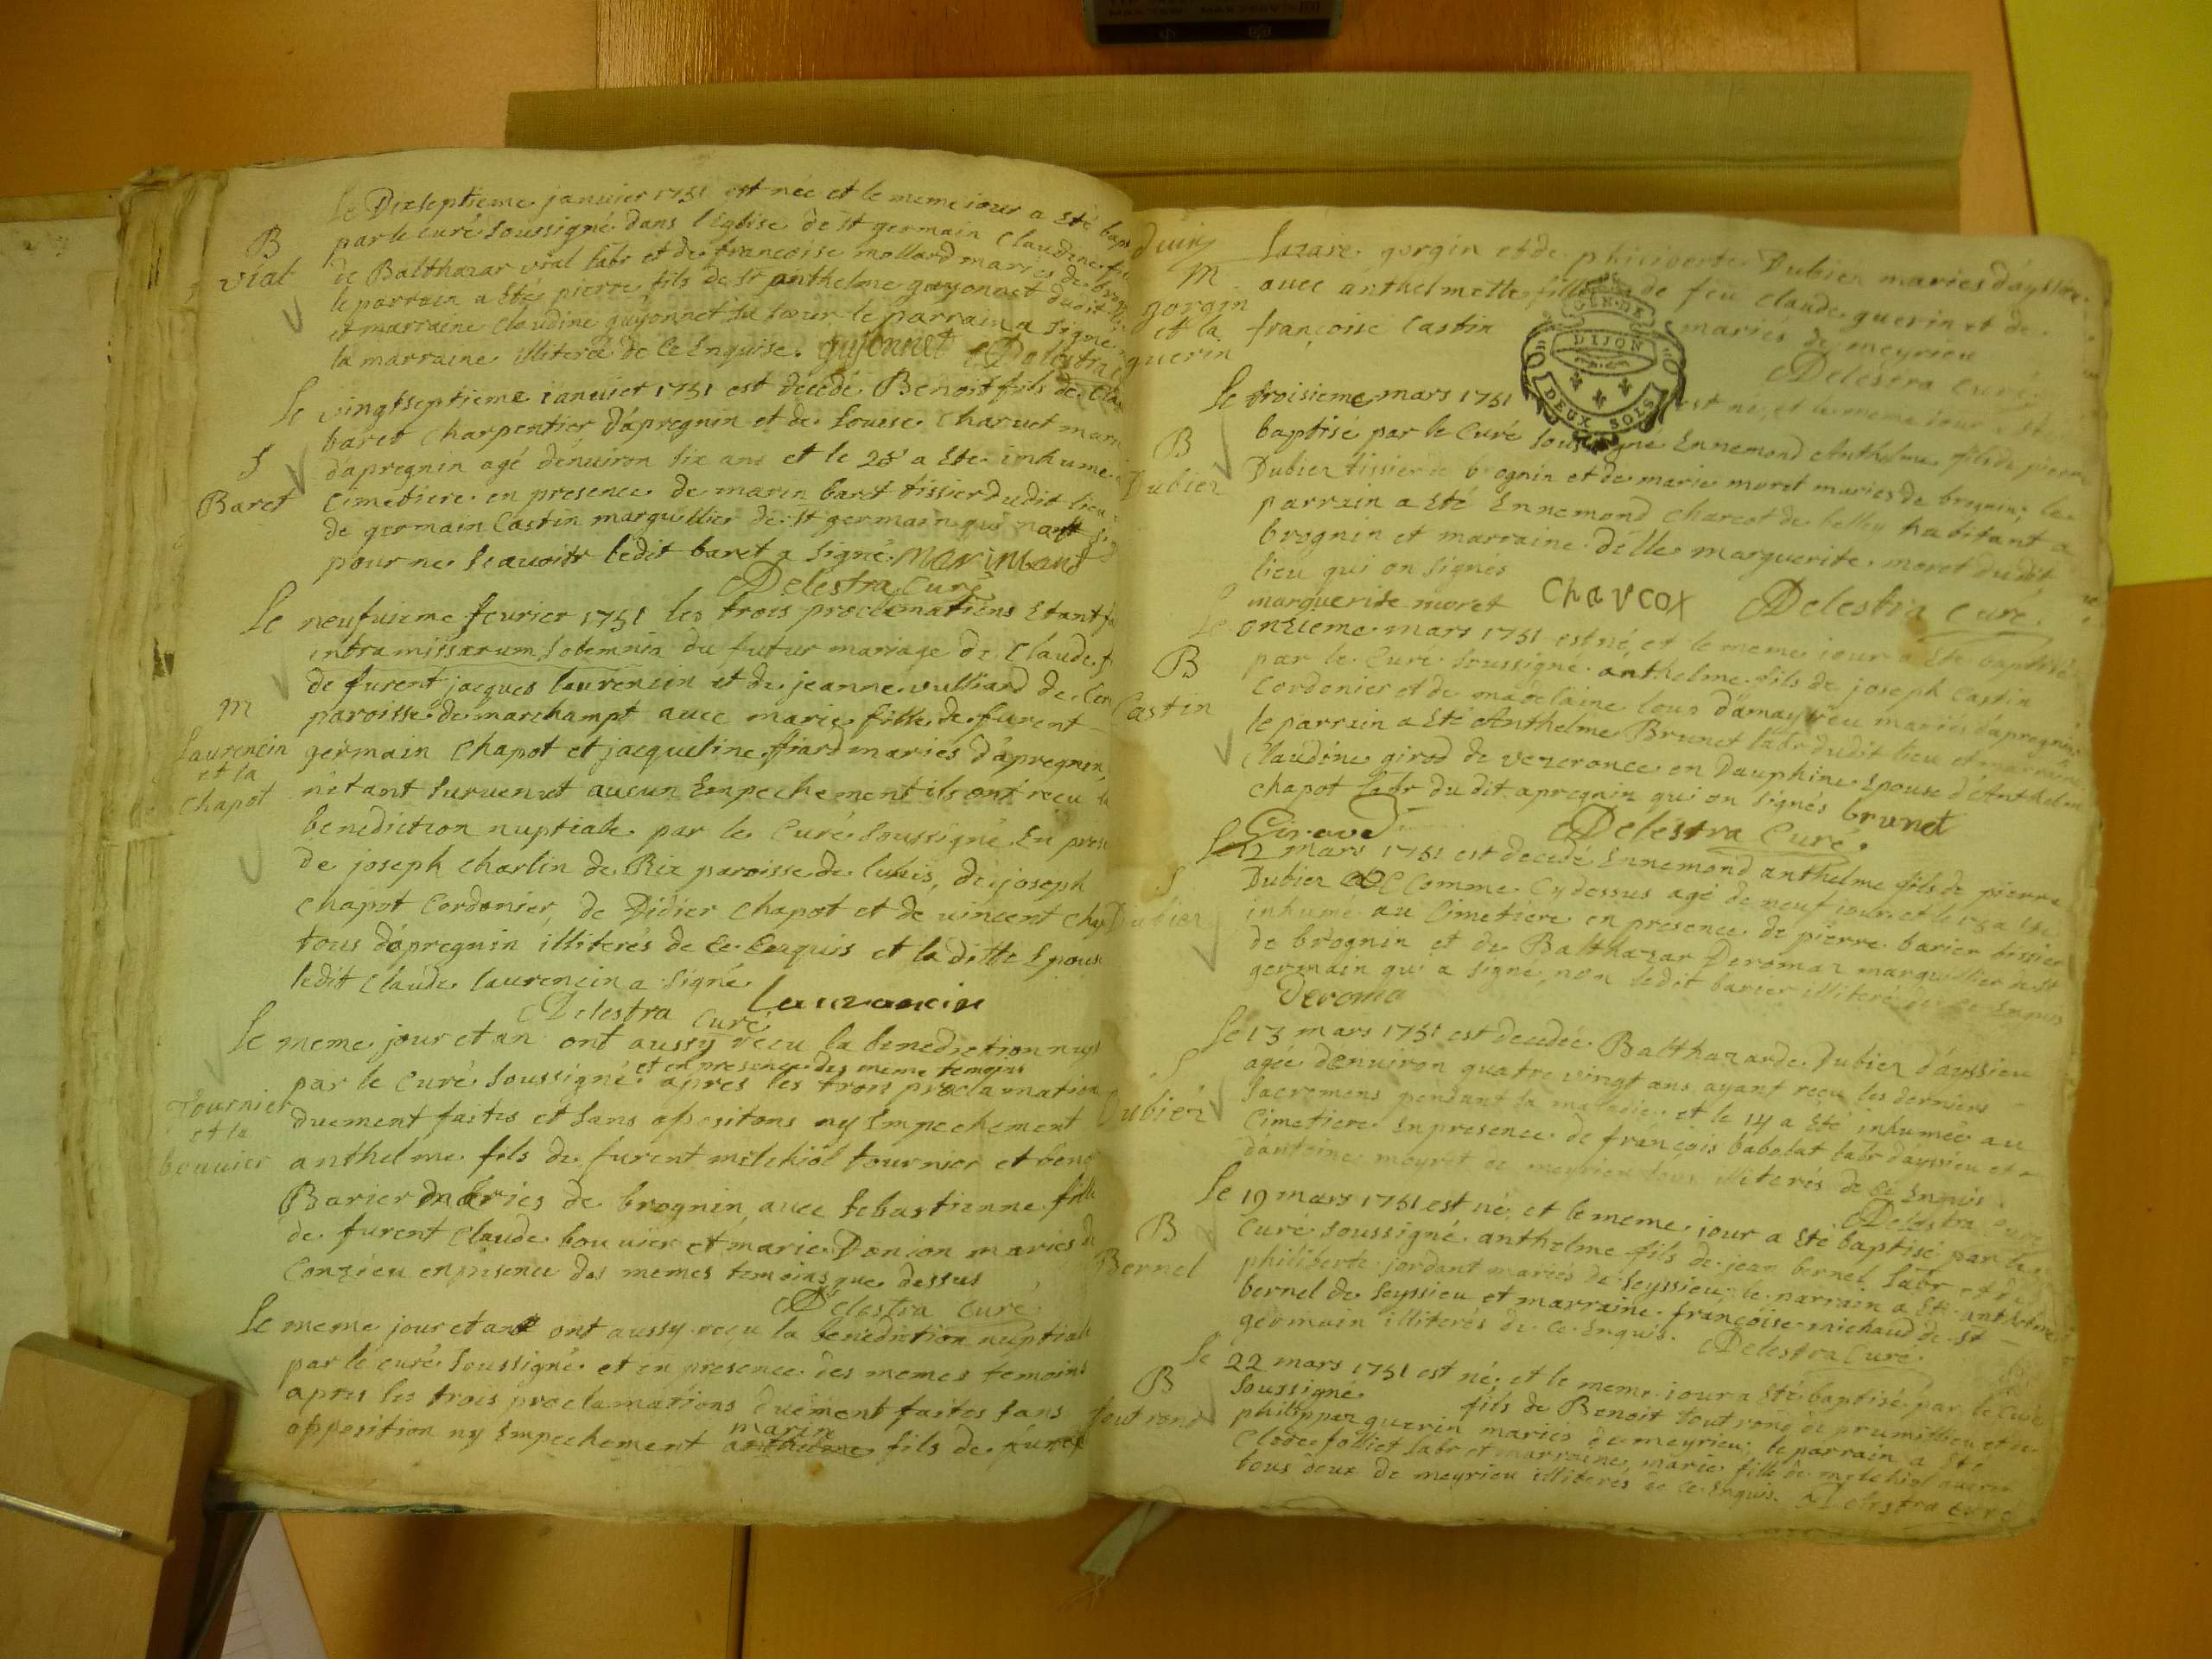 Le Dixseptieme janvier 1751 est née et le meme iour a eté bapt
B
par le curé soussigné dans l'eglise de st germain claudine fi
vial
de Balthazar vial labr et de francoise mollard mariés de brog
le parrain a eté pierre fils de sr anthelme guyonnet dudit
et marraine claudine guyonnet sa soeur le parrain a signé
la marraine illiterée de ce enquise. guyonnet Delestra
Le vingtseptieme ianvier 1751 est decedé Benoit fils de Cla
baret charpentier d'apregnin et de Louise charvet mari
S
d'apregnin agé d'environ six ans et le 28 a ete inhumé
Baret
cimetiere en presence de marin baret tissier dudit lieu
de germain Castin marguillier de st germain qui n'ont
pour ne scavoir ledit baret a signé. marin baret
Delestra curé
Le neufvieme fevrier 1751 les trois proclamations etant fa
intra missarum solemnia du futur mariage de Claude f
de furent jacques laurencin et de jeanne vulliard de Cen
m
paroisse de marchampt avec marie fille de furent
Laurencin
et la
chapot
germain chapot et jacqueline fiard mariés d'apregnin,
n'etant survenut aucun empechement ils ont reçu la
benediction nuptiale par le curé soussigné en prese
de joseph charlin de Rix paroisse de luhis, de joseph
chapot cordonier, de Didier chapot et de vincent chap
tous d'apregnin illiterés de ce enquis et la ditte epouse
ledit claude laurencin a signé
Delestra curé laurancin
Le meme jour et an ont aussy reçu la benediction nup
et en presence des meme temoins
par le curé soussigné apres les trois proclamation
Tournier
et la
bouvier
duement faites et sans opositons ny empechement
anthelme fils de furent melchiol tournier et beno
Barier mariés de brognin, avec sebastienne fille
de furent claude bouvier et marie Donjon mariés d
Conzieu en presence des memes temoins que dessus
Delestra curé
Le meme jour et an ont aussy reçu la benediction nuptiale
par le curé soussigné et en presence des memes temoins
apres les trois proclamations duement faites sans
marin
opposition ny empechement anthelme fils de furent
m
gorgin
et la
guerin
Lazare gorgin et de philiberte Dubiez mariés d'ayssieu
avec anthelmette fille de feu claude guerin et de
françoise Castin mariés de meyrieu
GEN. DE
DIJON
DEUX SOLS
Delestra curé
Le troisieme mars 1751 est né, et le meme iour a eté
B
Dubiez
baptise par le curé soussigné Ennemond Anthelme fils de pierre
Dubiez tissier de brognin et de marie moret mariés de brognin; le
parrain a eté Ennemond charcot de belley habitant a
brognin et marraine delle marguerite moret dudit
lieu qui on signés
marguerite moret Chavcox Delestra curé
Le onzieme mars 1751 est né, et le meme iour a eté baptisé
B
Castin
par le curé soussigné anthelme fils de joseph Castin
cordonier et de madelaine loup d'amayrieu mariés d'apregnin
le parrain a eté Anthelme Brunet labr dudit lieu et marraine
Claudine girod de vezeronce en Dauphine epouse d'Anthelme
chapot labr du dit apregnin qui on signés brunet
Giraud Delestra Curé.
Le 12 mars 1751 est decedé Ennemond anthelme fils de pierre
S
Dubiez
Dubiez comme cy dessus agé de neuf iours et le 13 a ete
inhumé au cimetiere en presence de pierre barier tissier
de brognin et de Balthazar Deromaz marguillier de st
germain qui a signé, non ledit barier illiteré de ce enquis
Deroma
Le 13 mars 1751 est decedée Balthazarde Dubiez d'ayssieu
S
Dubiez
agée d'environ quatre vingt ans ayant reçu les derniers
sacremens pendant sa maladie, et le 14 a eté inhumée au
cimetiere en presence de françois babolat labr d'ayssieu et
d'antoine meyret de meyrieu tous illiterés de ce enquis.
Delestra curé
Le 19 mars 1751 est né, et le meme iour a eté baptisé par le
B
Bernel
curé soussigné anthelme fils de jean bernel labr et de
philiberte jordant mariés de seyssieu; le parrain a eté anthelme
bernel de seyssieu et marraine françoise michaud de st
germain illiterés de ce enquis. Delestra curé.
Le 22 mars 1751 est né, et le meme iour a eté baptisé par le curé
B
tout rond
soussigné fils de Benoit tout rond de prumillieu et de
philippaz guerin mariés de meyrieu; le parrain a eté
Clode folliet labr et marraine marie fille de melchiol guerin
tous deux de meyrieu illiterés de ce enquis. Delestra curé